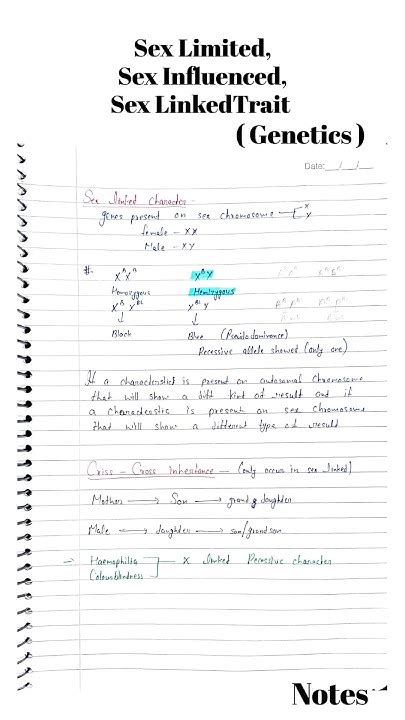 Sex Limited,
Sex Influenced,
Sex LinkedTrait
( Genetics )
Date:__/__/__
Sex linked character -
genes present on sex chromosome — X
Y
female - XX
Male - XY
#.
Homozygous Hemizygous
↓ ↓
Black Blue (Pseudodominence)
Recessive allele showed (only one)
If a characteristic is present on autosomal chromosome
that will show a diff kind of result and if
a characteristic is present on sex chromosome
that will show a different type of result
Criss - Cross inheritance — (only occur in sex linked)
Mother → Son → grand daughter
Male → daughter → son/grandson
→ Haemophilia
Colourblindness — X linked Recessive character
Notes